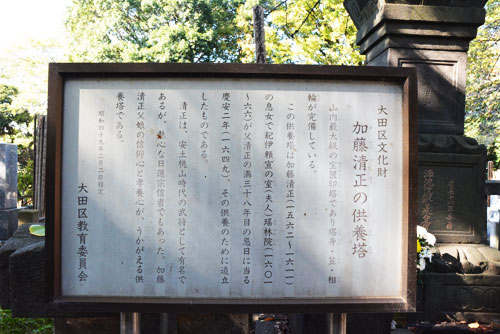 大田区文化財
加藤清正の供養塔
山内最大級の宝篋印塔であり塔身・笠・相
輪が完備している。
この供養塔は加藤清正(一五六二～一六一一)
の息女で紀伊頼宣の室(夫人)瑤林院(一六〇一
～六六)が父清正の満三十八年目の忌日に当る
慶安二年(一六四九)、その供養のために造立
したものである。
清正は、安土桃山時代の武将として有名で
あるが、熱心な日蓮宗信者でもあった。加藤
清正父娘の信仰心と孝養心が、うかがえる供
養塔である。
昭和四十九年二月二日指定
大田区教育委員会